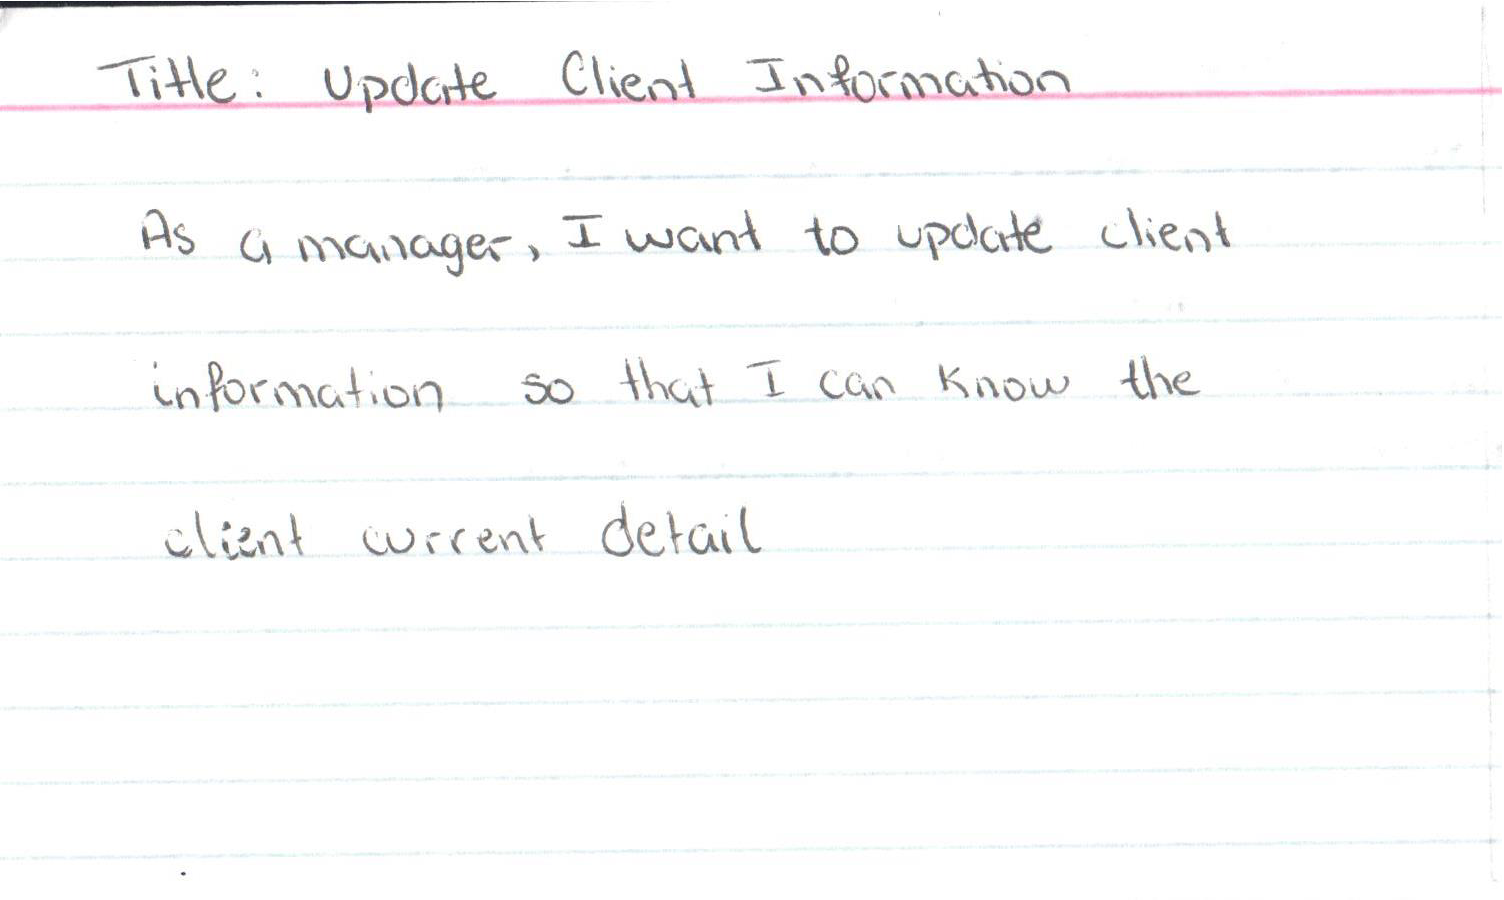 Title: Update Client Information
As a manager, I want to update client
information so that I can know the
client current detail